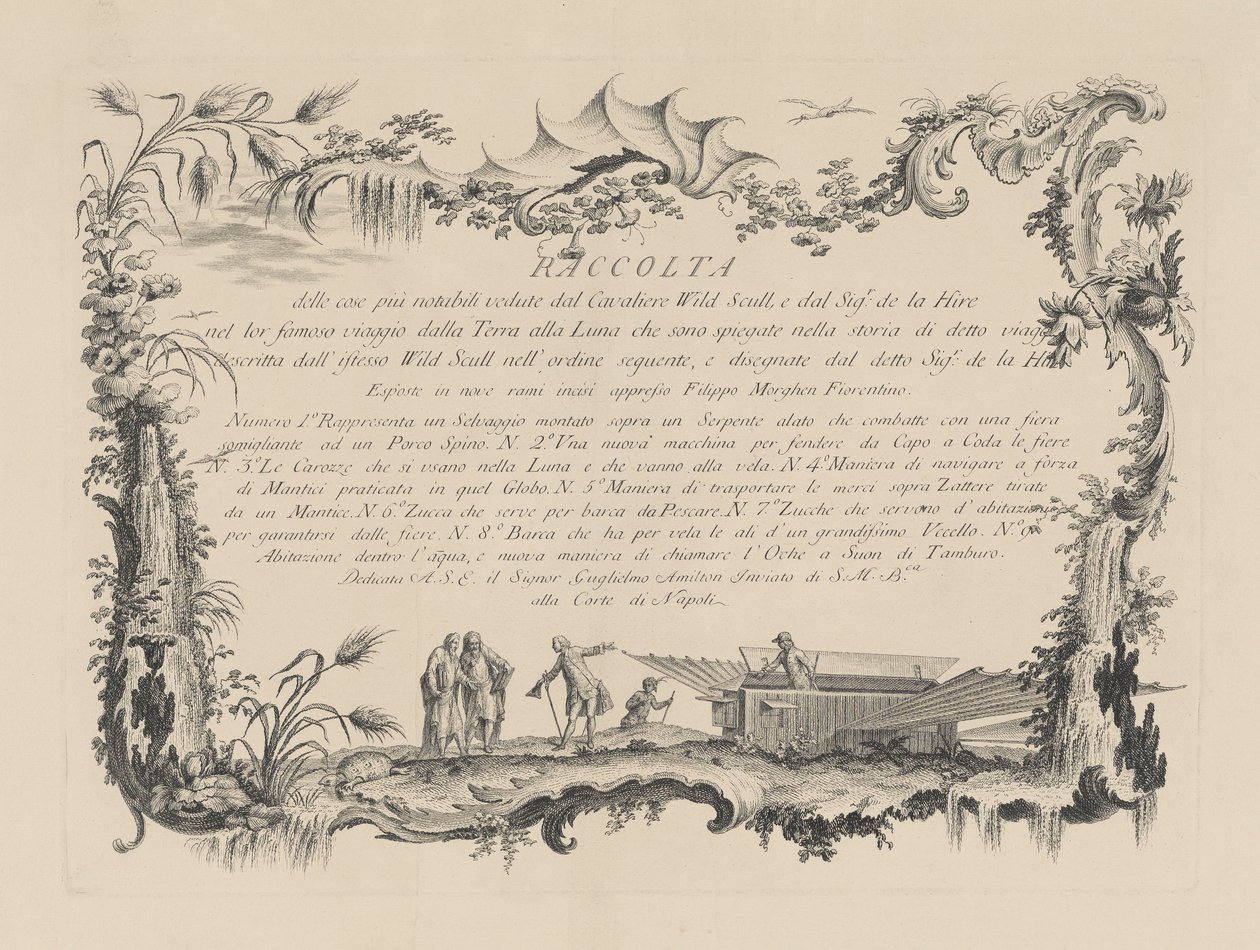 RACCOLTA
delle cose più notabili vedute dal Cavaliere Wild Scull, e dal Sig.r de la Hire
nel lor famoso viaggio dalla Terra alla Luna che sono spiegate nella storia di detto viagg
descritta dall' istesso Wild Scull nell' ordine seguente, e disegnate dal detto Sig.r de la Hire
Esposte in nove rami incisi appresso Filippo Morghen Fiorentino.
Numero 1.º Rappresenta un Selvaggio montato sopra un Serpente alato che combatte con una fiera
somigliante ad un Porco Spino. N. 2.º Una nuova macchina per fendere da Capo a Coda le fiere
N. 3.º Le Carozze che si usano nella Luna e che vanno alla vela. N. 4.º Maniera di navigare a forza
di Mantici praticata in quel Globo. N. 5.º Maniera di trasportare le merci sopra Zattere tirate
da un Mantice. N. 6.º Zucca che serve per barca da Pescare. N. 7.º Zucche che servono d' abitazione
per garantirsi dalle fiere. N. 8.º Barca che ha per vela le ali d' un grandissimo Vccello. N.º 9.º
Abitazione dentro l' aqua, e nuova maniera di chiamare l' Oche a Suon di Tamburo.
Dedicata A. S. E. il Signor Guglielmo Amilton Inviato di S. M. B.ca
alla Corte di Napoli